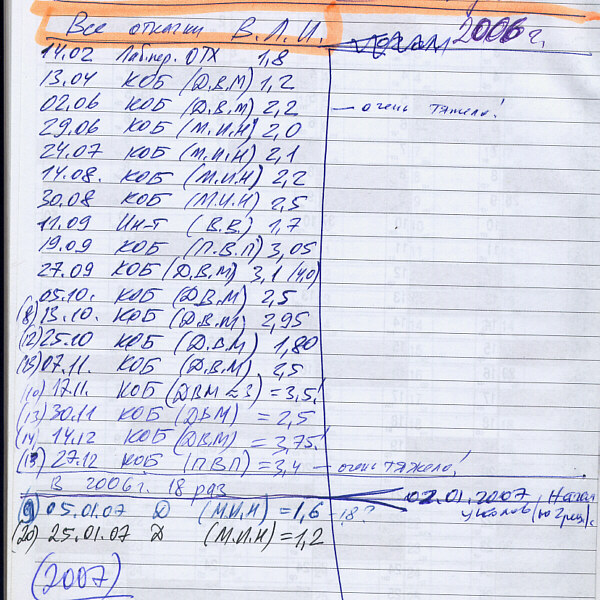 Все откачки В.Л.И. 2006 г.
14.02 Лап.пер. ОТХ 1,8
13.04 КОБ (Д.В.М) 1,2
02.06 КОБ (Д.В.М) 2,2 — очень тяжело!
29.06 КОБ (М.И.Н) 2,0
24.07 КОБ (М.И.Н) 2,1
14.08. КОБ (М.И.Н) 2,2
30.08 КОБ (М.И.Н) 2,5
11.09 Ин-т (В.В.) 1,7
19.09 КОБ (П.В.П) 3,05
27.09 КОБ (Д.В.М) 3,1 (4,0)
05.10. КОБ (Д.В.М) 2,5
(8) 13.10. КОБ (Д.В.М) 2,95
(12) 25.10 КОБ (Д.В.М) 1,80
07.11. КОБ (Д.В.М) 2,5
(10) 17.11. КОБ (ДВМ ≈3) = 3,5!
(13) 30.11 КОБ (ДВМ) = 2,5
(14) 14.12 КОБ (ДВМ) = 3,75!
(13) 27.12 КОБ (ПВП) = 3,4 — очень тяжело!
В 2006 г. 18 раз
02.01.2007 Начал
уколов
(9) 05.01.07 Д (М.И.Н) = 1,6 -18?
(20) 25.01.07 Д (М.И.Н) = 1,2
(2007)